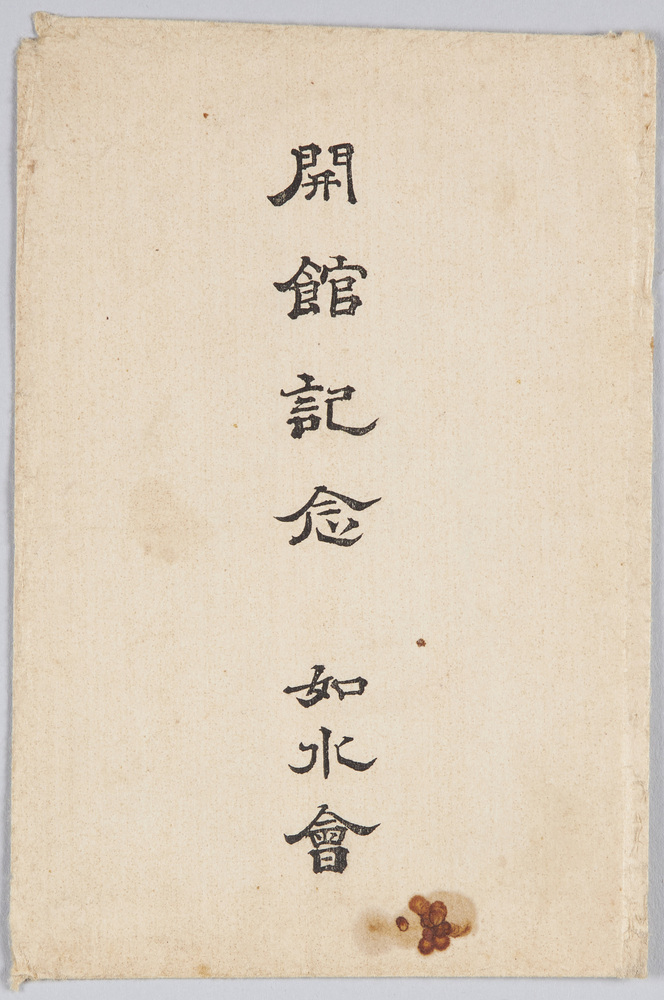 開館記念 如水會